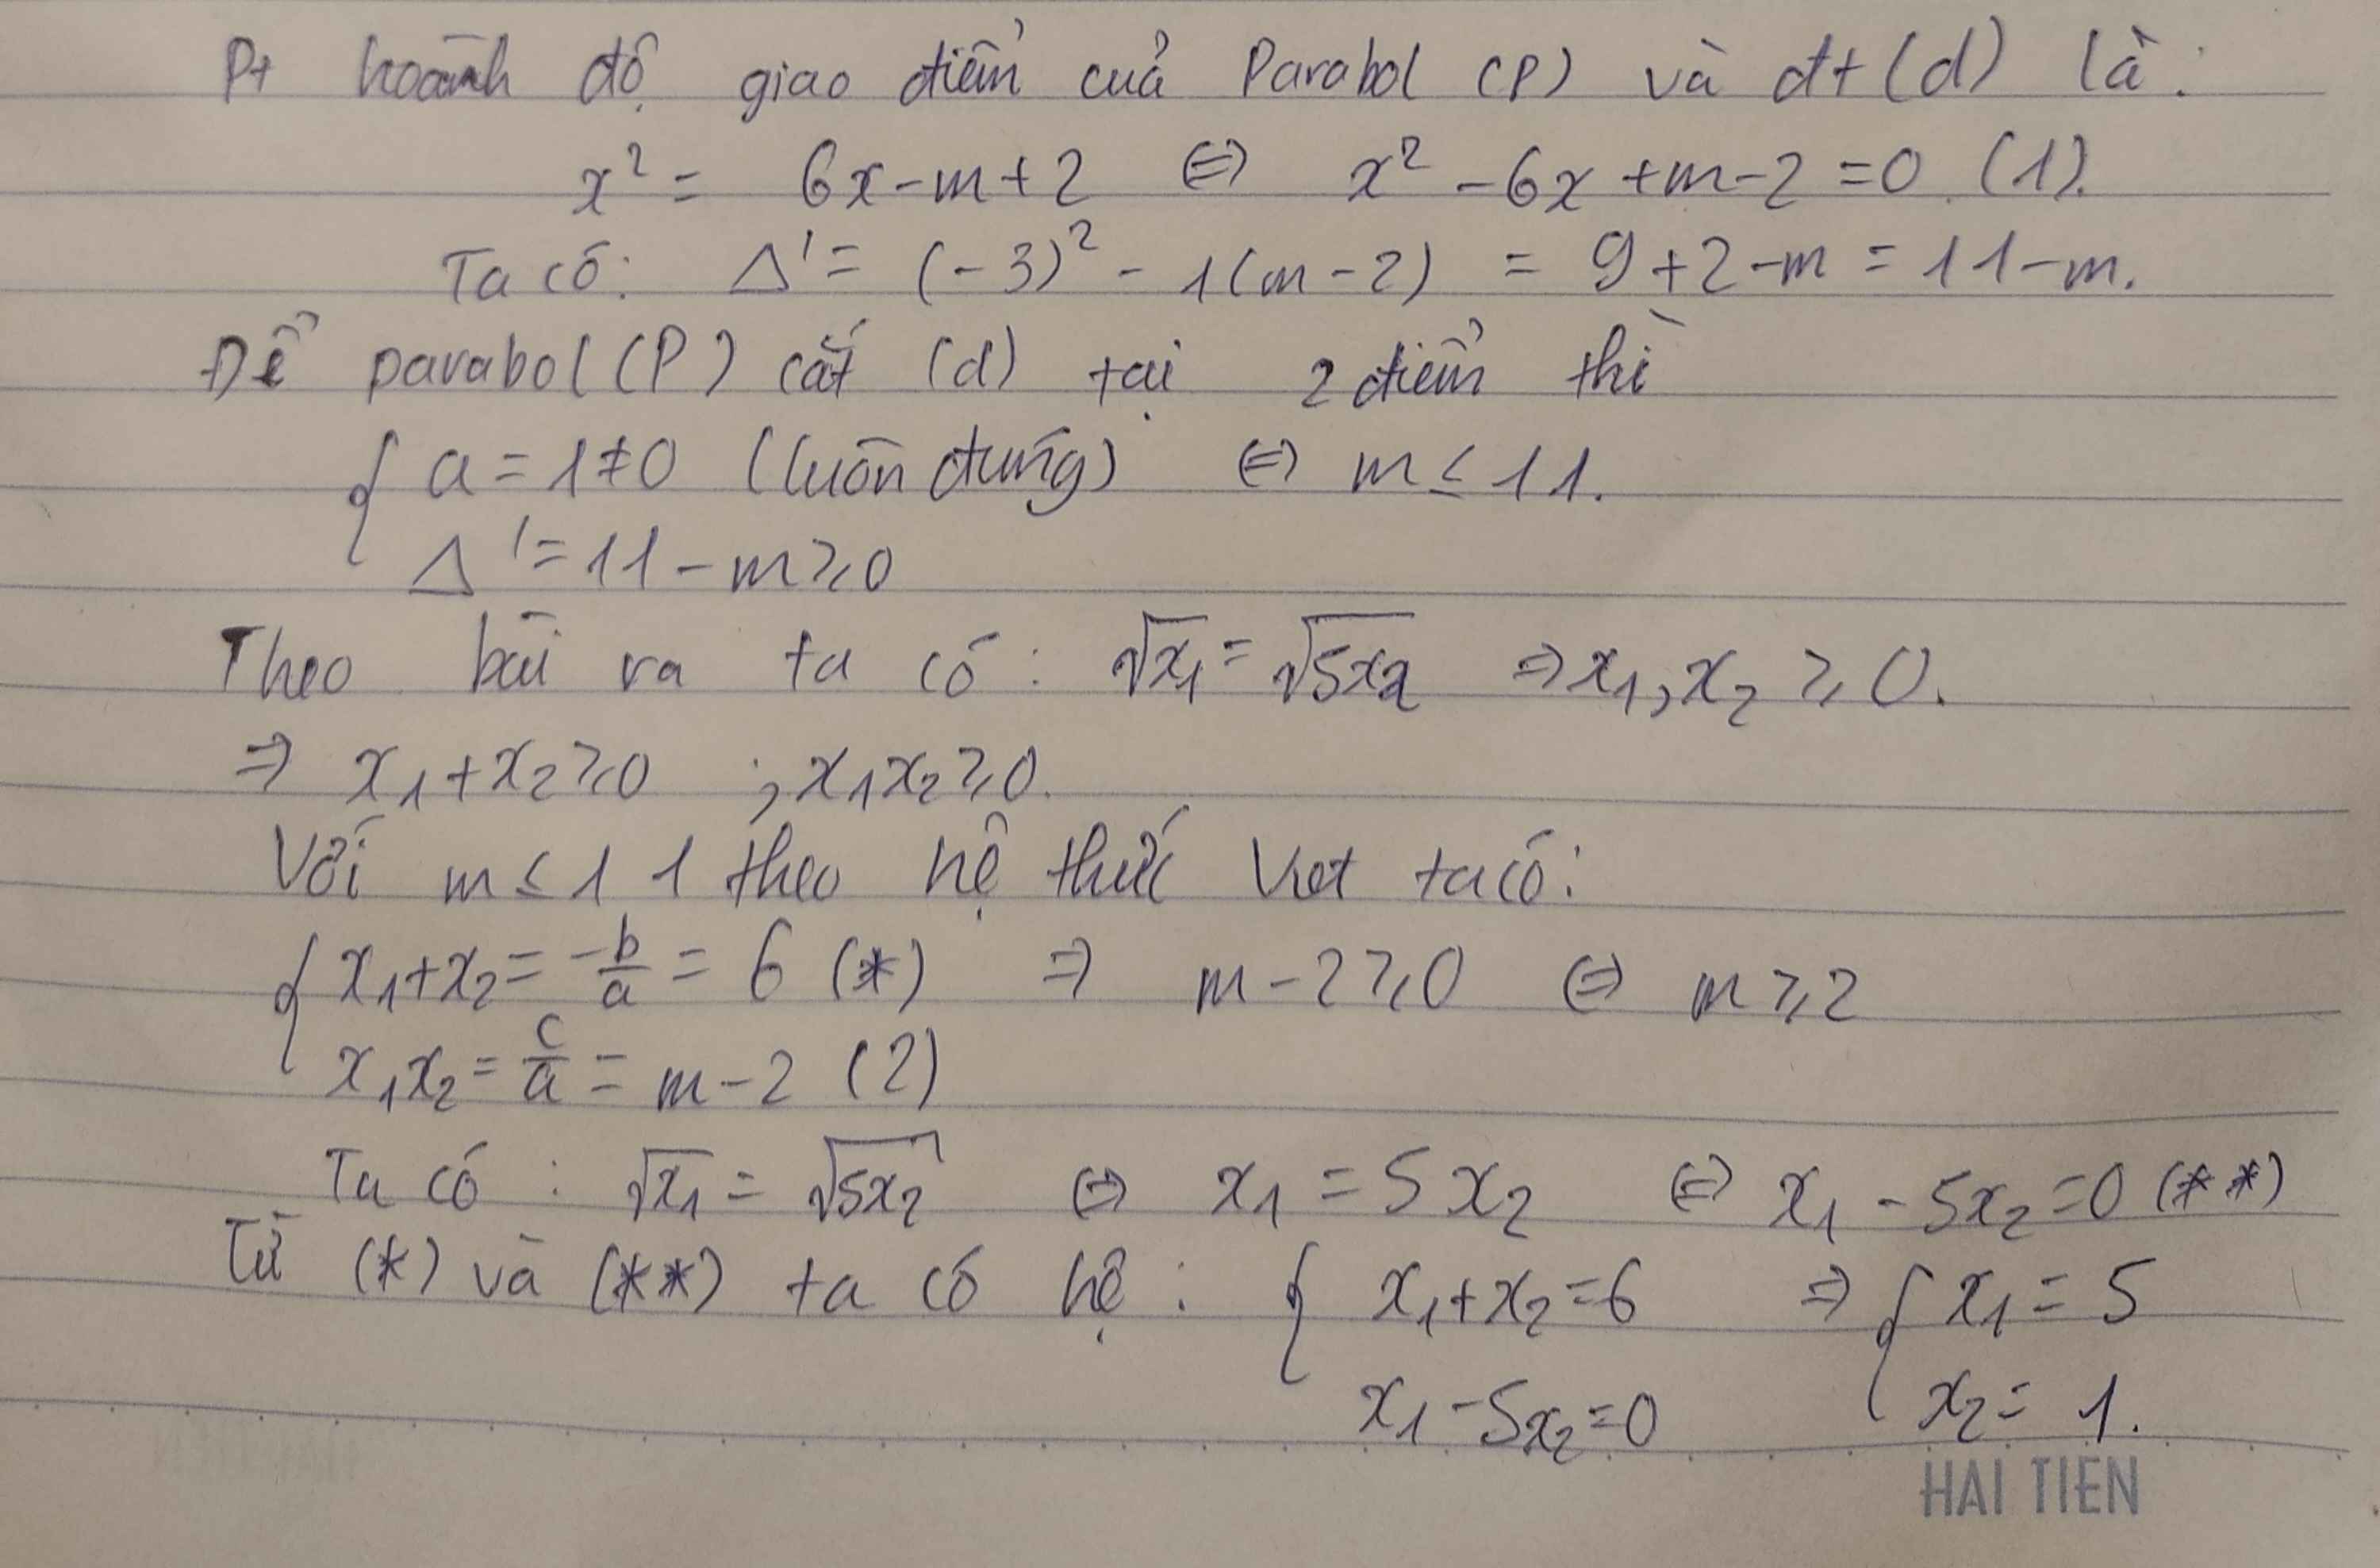 Pt hoành độ giao điểm của Parabol (P) và đt (d) là:
x² = 6x - m + 2 ⇔ x² - 6x + m - 2 = 0 (1).
Ta có: Δ' = (-3)² - 1(m - 2) = 9 + 2 - m = 11 - m.
Để parabol (P) cắt (d) tại 2 điểm thì
{ a = 1 ≠ 0 (luôn đúng) ⇔ m ≤ 11.
Δ' = 11 - m ≥ 0
Theo bài ra ta có: √x₁ = √5x₂ ⇒ x₁, x₂ ≥ 0.
⇒ x₁ + x₂ ≥ 0 ; x₁x₂ ≥ 0.
Với m ≤ 11 theo hệ thức Viet ta có:
{ x₁ + x₂ = -b/a = 6 (*) ⇒ m - 2 ≥ 0 ⇔ m ≥ 2
x₁x₂ = c/a = m - 2 (2)
Ta có: √x₁ = √5x₂ ⇔ x₁ = 5x₂ ⇔ x₁ - 5x₂ = 0 (**)
Từ (*) và (**) ta có hệ: { x₁ + x₂ = 6 ⇒ { x₁ = 5
x₁ - 5x₂ = 0 x₂ = 1.
HAI TIEN